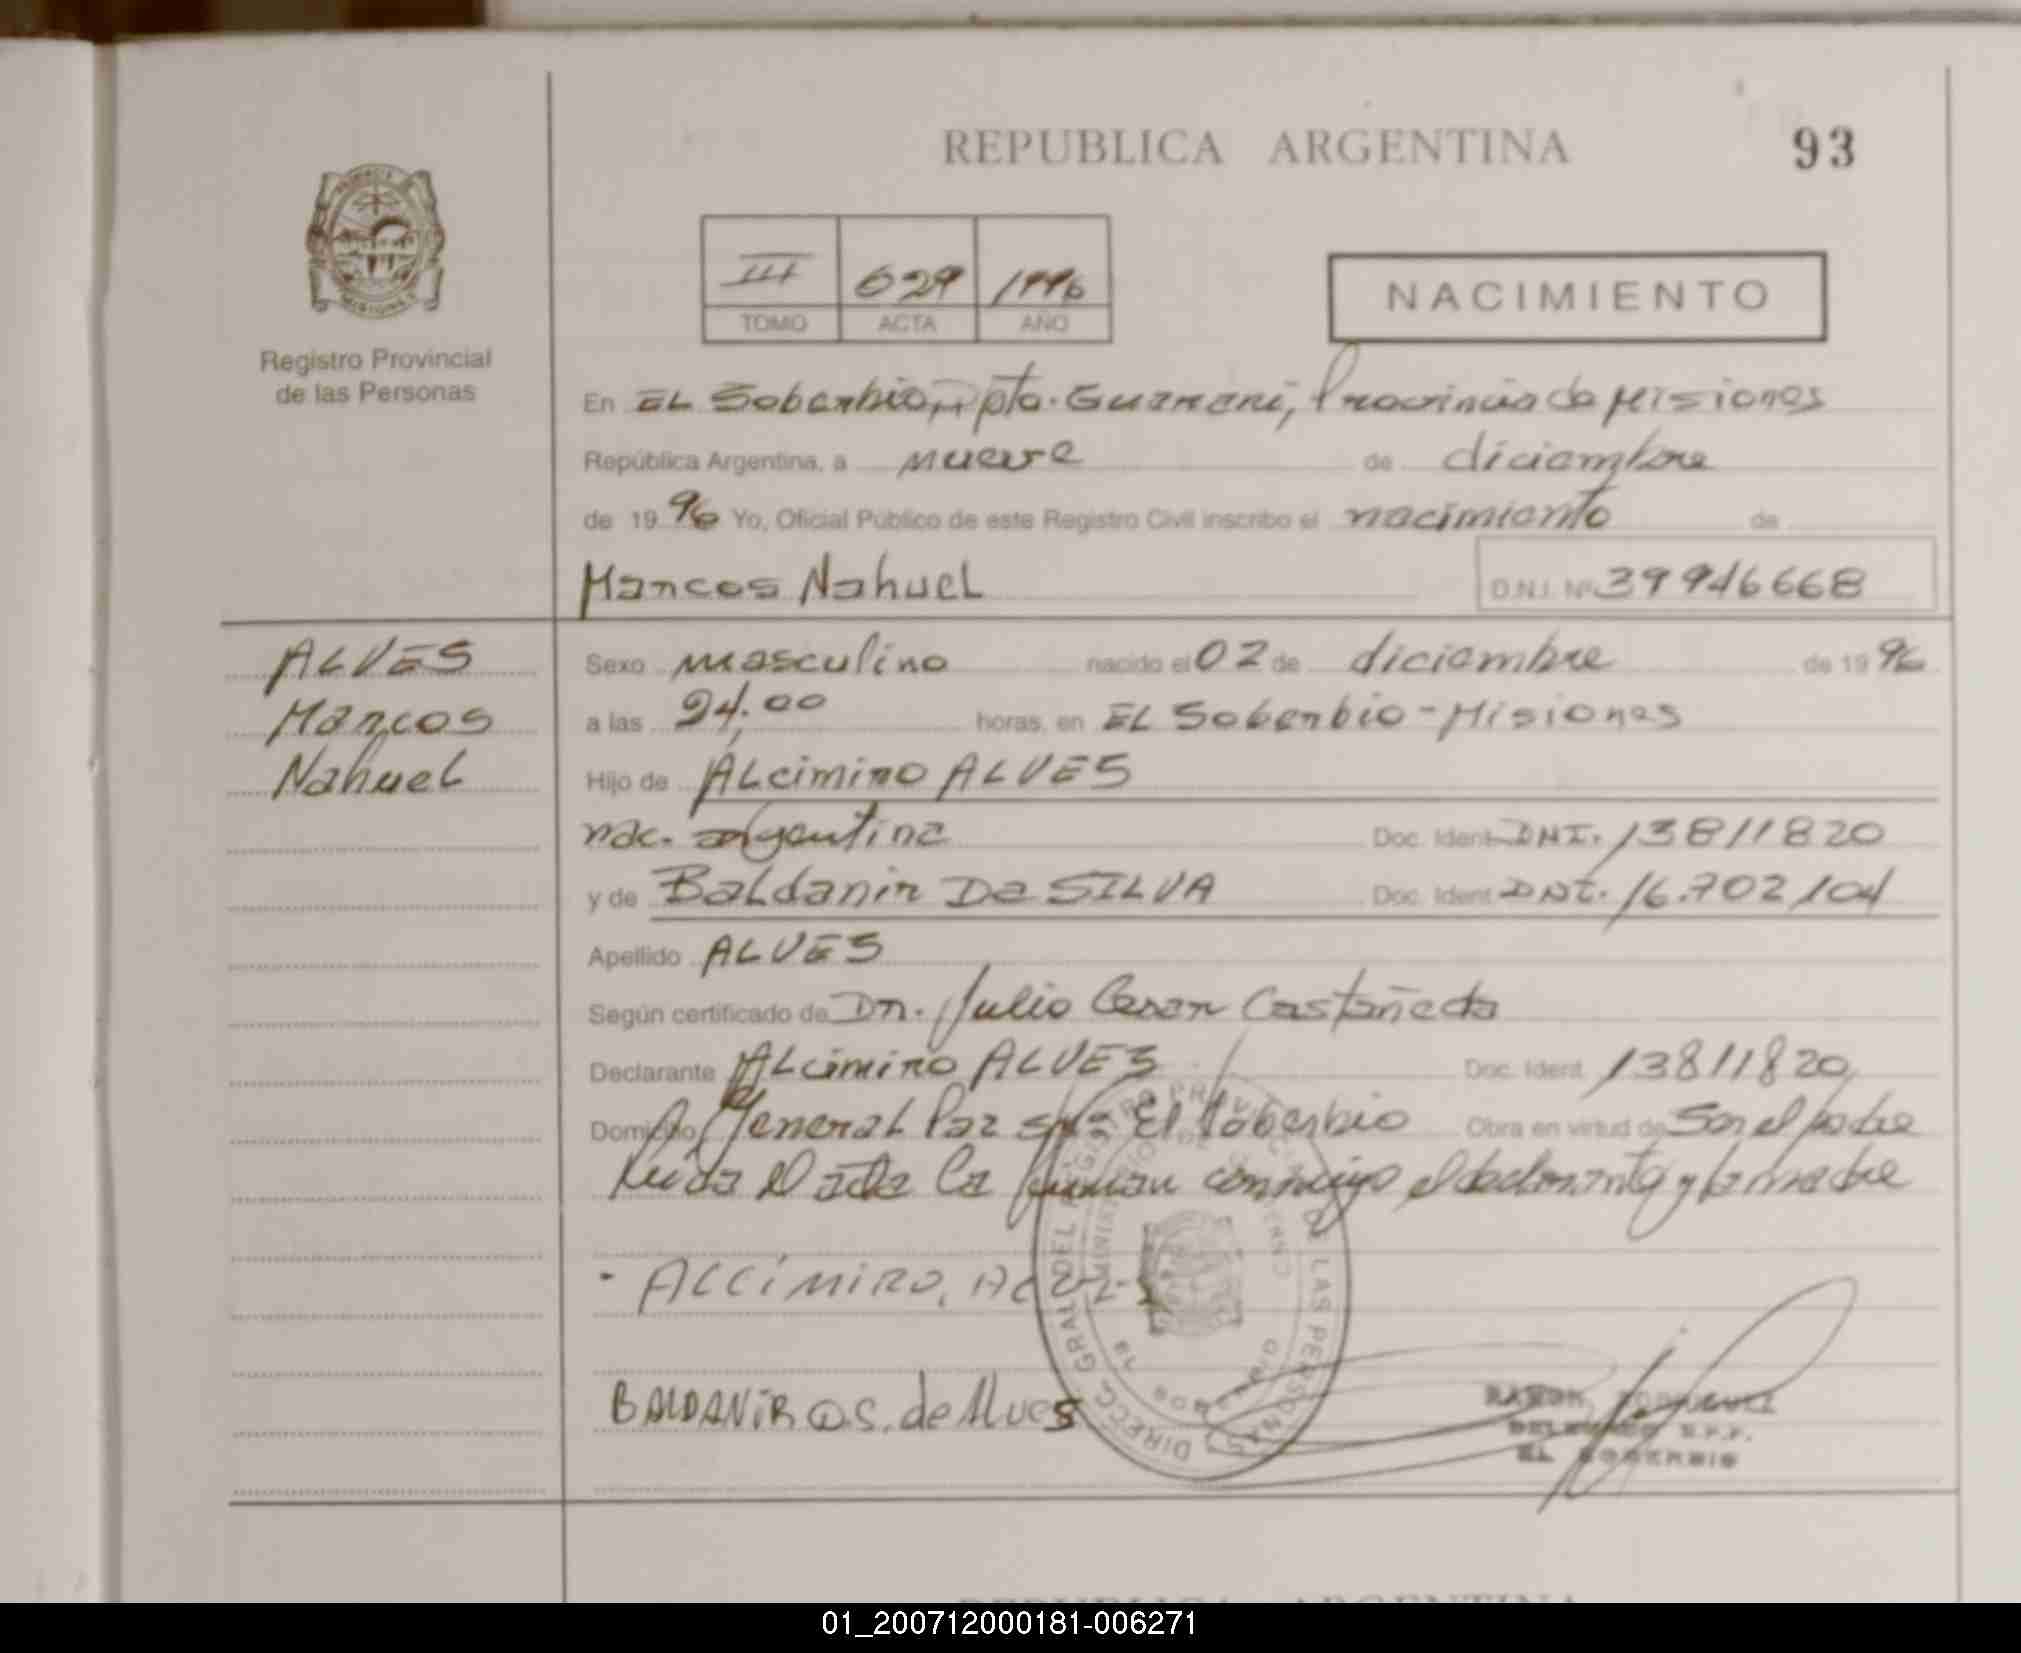 REPUBLICA ARGENTINA
93
Registro Provincial
de las Personas
III 629 1996
TOMO ACTA AÑO
NACIMIENTO
En EL Soberbio, Dpto. Guarani, Provincia de Misiones
República Argentina, a nueve de diciembre
de 1996 Yo, Oficial Público de este Registro Civil inscribo el nacimiento de
Marcos Nahuel D.N.I. Nº 39946668
ALVES
Marcos
Nahuel
Sexo masculino nacido el 02 de diciembre de 1996
a las 24,00 horas, en EL Soberbio - Misiones
Hijo de ALcimiro ALVES
nac. argentina Doc. Ident DNI. 13811820
y de Baldanir Da SILVA Doc. Ident DNI. 16.702,104
Apellido ALVES
Según certificado de Dr. Julio Cesar Castañeda
Declarante ALcimiro ALVES Doc. Ident 13811820
Domicilio General Paz s/nº El Soberbio Obra en virtud de Ser el padre
Leida el acta la firman conmigo el declarante y la madre
ALCIMIRO, ALVES
BALDANiR D.S. de Alves
DIRECC. GRAL. DEL REGISTRO PROVINCIAL DE LAS PERSONAS
MINISTERIO DE GOBIERNO
RAMON RODRIGUEZ
DELEGADO R.P.P.
EL SOBERBIO
REPUBLICA ARGENTINA
01_200712000181-006271